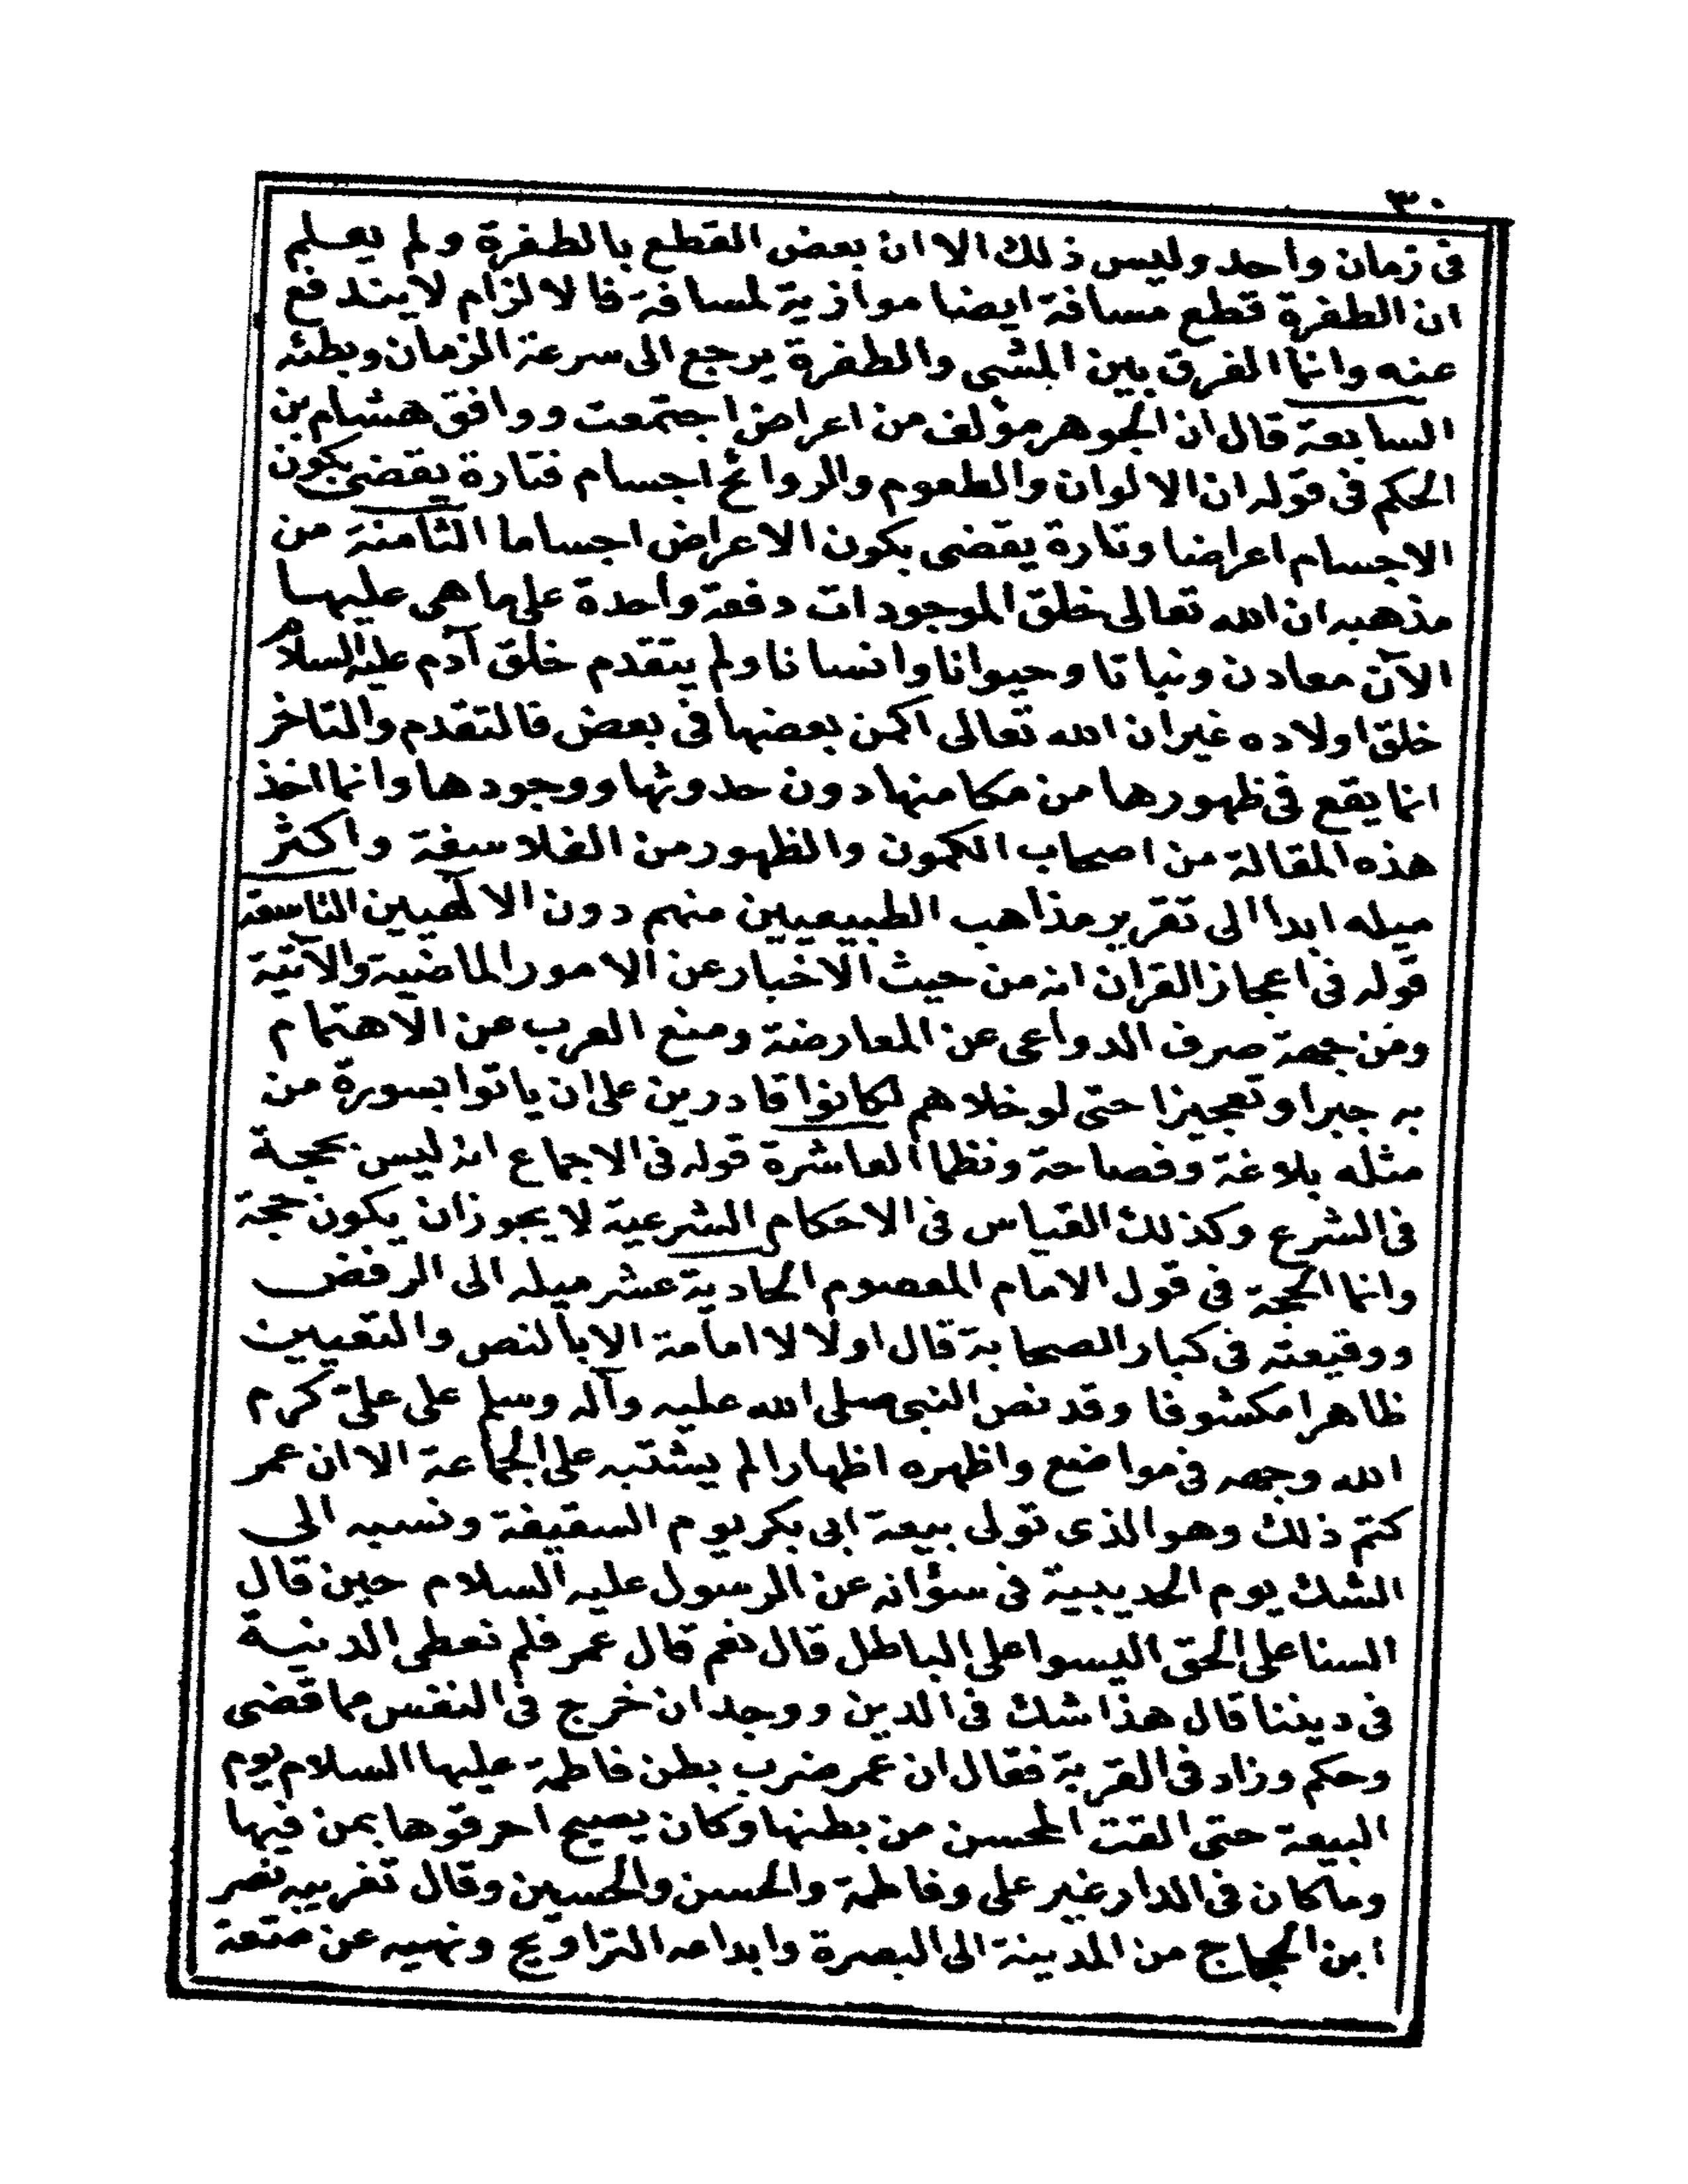 ٣٠
فى زمان واحد وليس ذلك الا ان بعض القطع بالطفرة ولم يعلم
ان الطفرة قطع مسافة ايضا موازية لمسافة فالالزام لا يندفع
عنه وانما الفرق بين المشى والطفرة يرجع الى سرعة الزمان وبطئه
السابعة قال ان الجوهر مؤلف من اعراض اجتمعت ووافق هشام بن
الحكم فى قوله ان الالوان والطعوم والروائح اجسام فتارة يقضى بكون
الاجسام اعراضا وتارة يقضى بكون الاعراض اجساما الثامنة من
مذهبه ان الله تعالى خلق الموجودات دفعة واحدة على ما هى عليها
الآن معادن ونباتا وحيوانا وانسانا ولم يتقدم خلق آدم عليه السلام
خلق اولاده غير ان الله تعالى اكمن بعضها فى بعض فالتقدم والتاخر
انما يقع فى ظهورها من مكامنها دون حدوثها ووجودها وانما اخذ
هذه المقالة من اصحاب الكمون والظهور من الفلاسفة واكثر
ميله ابدا الى تقرير مذاهب الطبيعيين منهم دون الالٰهيين التاسعة
قوله فى اعجاز القران انه من حيث الاخبار عن الامور الماضية والآتية
ومن جهة صرف الدواعى عن المعارضة ومنع العرب عن الاهتمام
به جبرا وتعجيزا حتى لو خلاهم لكانوا قادرين على ان ياتوا بسورة من
مثله بلاغة وفصاحة ونظما العاشرة قوله فى الاجماع انه ليس بحجة
فى الشرع وكذلك القياس فى الاحكام الشرعية لا يجوز ان يكون حجة
وانما الحجة فى قول الامام المعصوم الحادية عشر ميله الى الرفض
ووقيعته فى كبار الصحابة قال اولا لا امامة الا بالنص والتعيين
ظاهرا مكشوفا وقد نص النبى صلى الله عليه وآله وسلم على على كرم
الله وجهه فى مواضع واظهره اظهارا لم يشتبه على الجماعة الا ان عمر
كتم ذلك وهو الذى تولى بيعة ابى بكر يوم السقيفة ونسبه الى
الشك يوم الحديبية فى سؤاله عن الرسول عليه السلام حين قال
السنا على الحق اليسوا على الباطل قال نعم قال عمر فلم نعطى الدنية
فى ديننا قال هذا شك فى الدين ووجدان خرج فى النفس مما قضى
وحكم وزاد فى القرية فقال ان عمر ضرب بطن فاطمة عليها السلام يوم
البيعة حتى القت المحسن من بطنها وكان يصيح احرقوها بمن فيها
وما كان فى الدار غير على وفاطمة والحسن والحسين وقال تغريبه نصر
ابن الحجاج من المدينة الى البصرة وابداعه التراويح ونهيه عن متعة